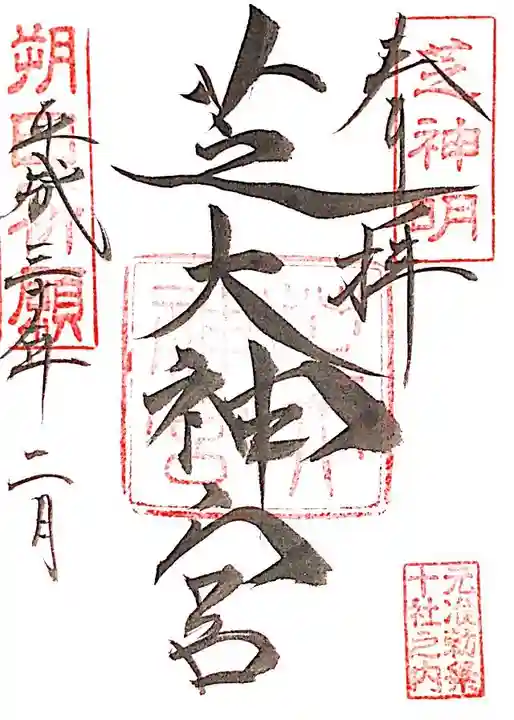 芝神明
奉拝
元准勅祭
十社之内
芝大神宮
朔日祈願
平成三十年 二月